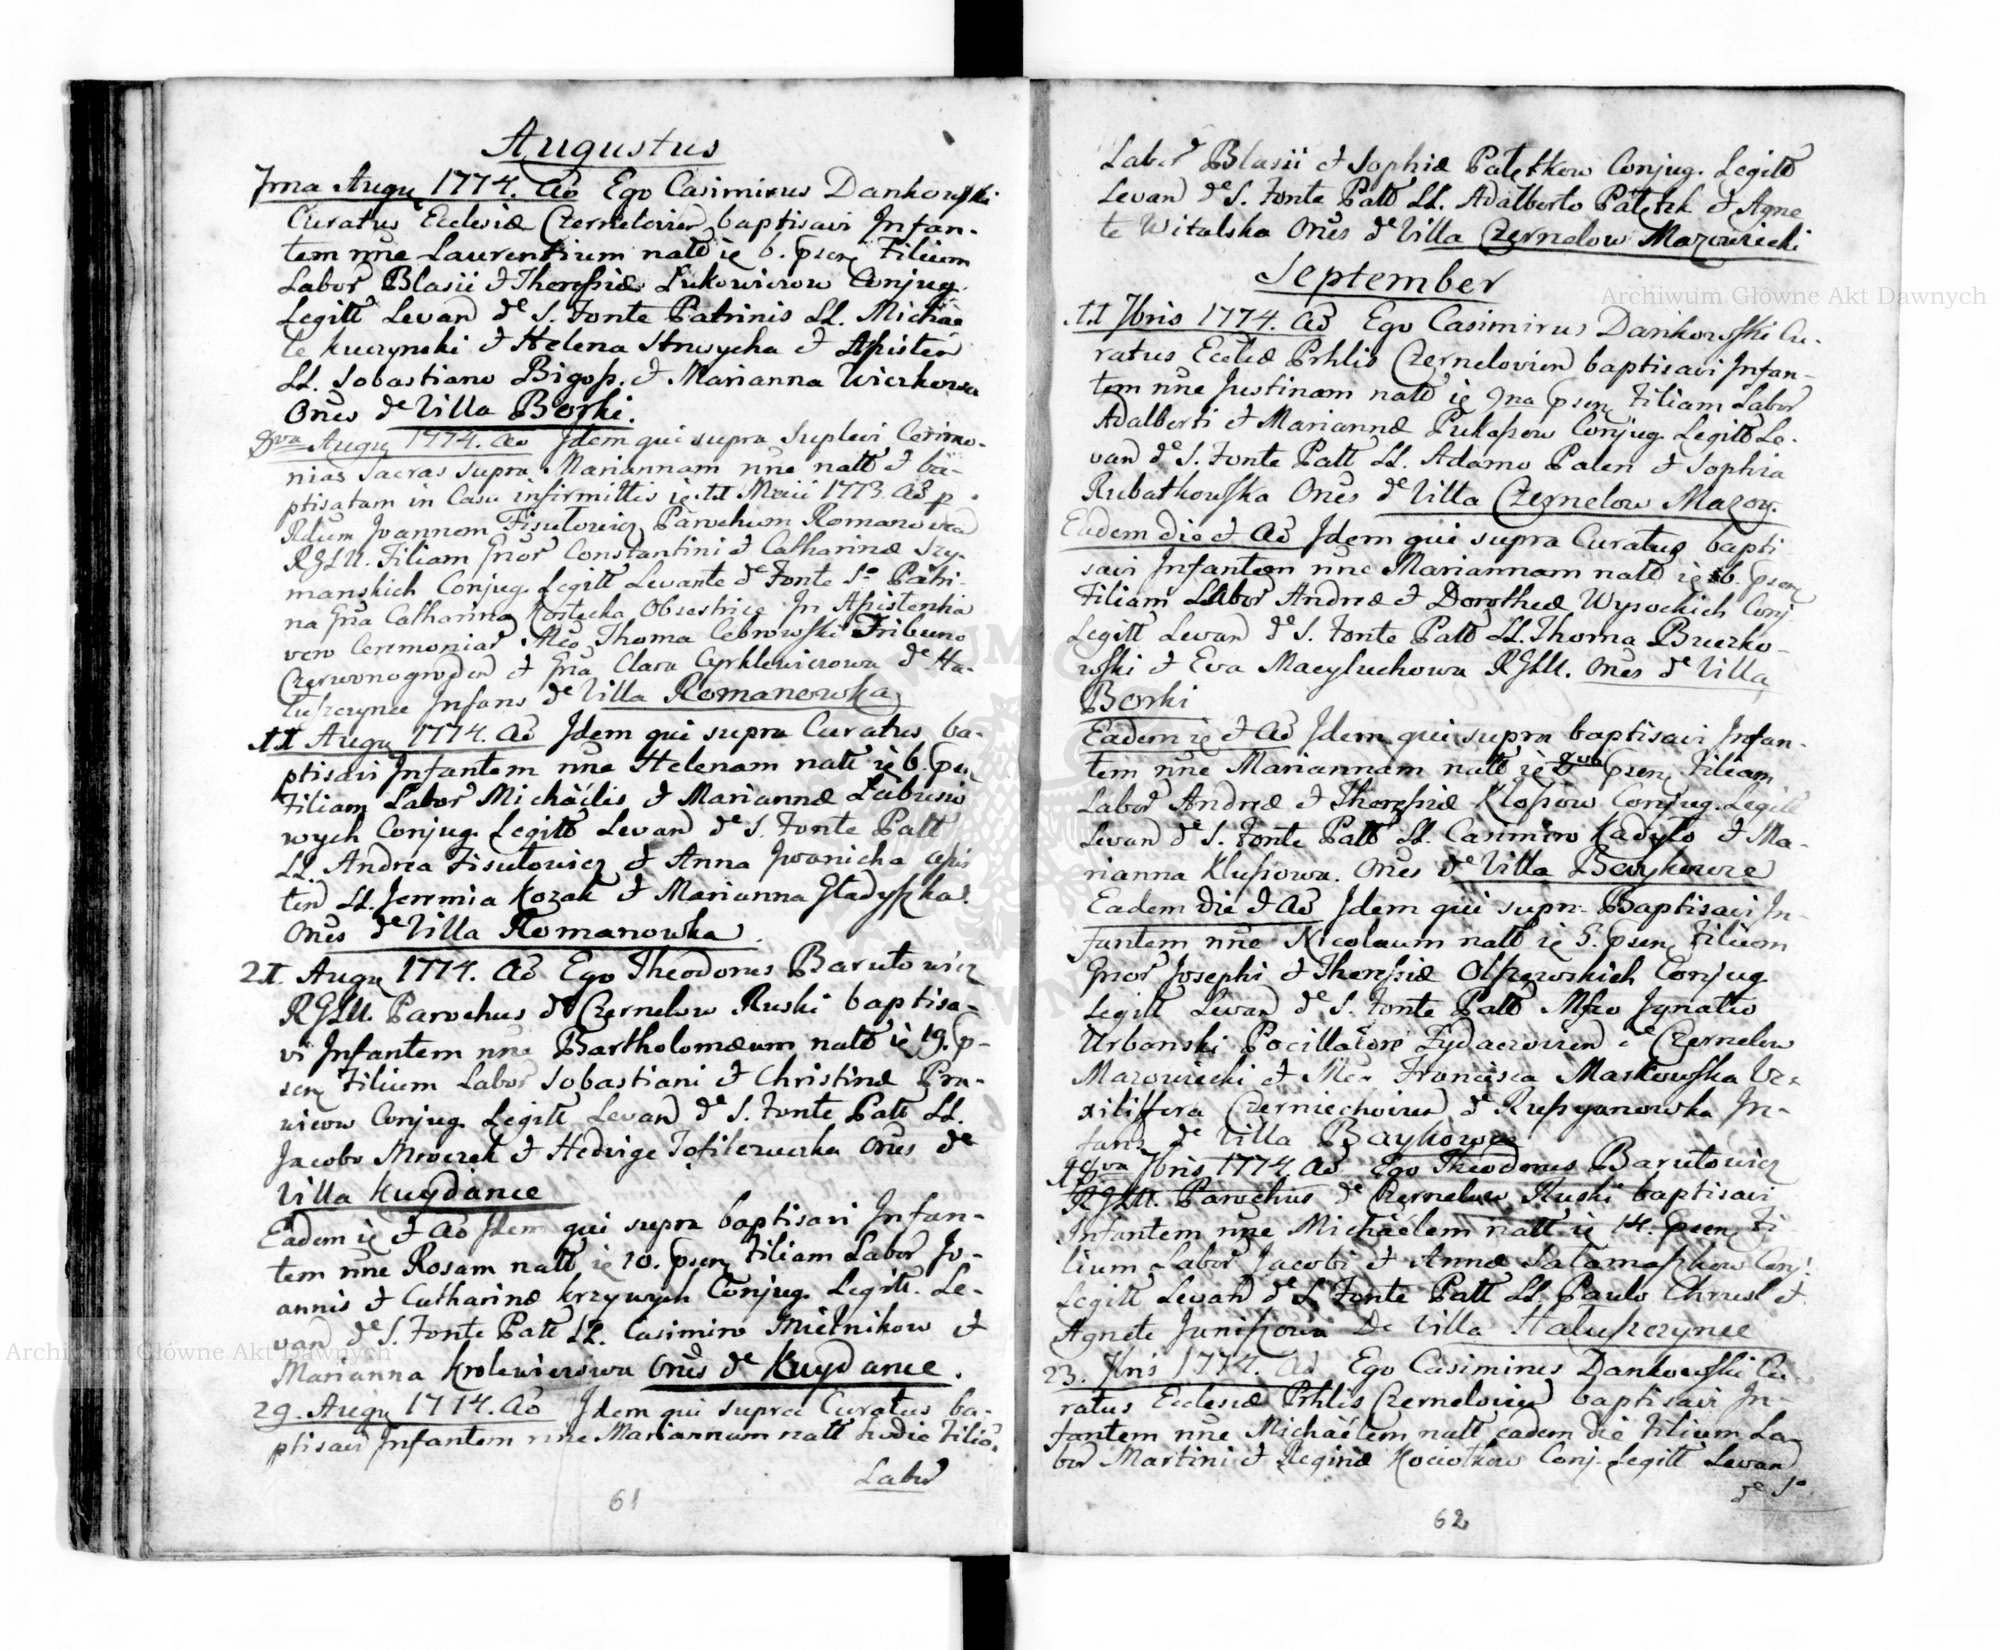 Augustus
7ma Augą 1774. Aõ Ego Casimirus Dankowski
Curatus Ecclesiæ Czernelovien baptisavi Infan-
tem nñe Laurentium natõ ię 6. psenę Filium
Labor Blasii et Theressiæ Lukowiczow Conjug.
Legitt Levand de S. Fonte Patrinis LL. Michae
le Kuczynski et Helena Hnwycha et Assisten
LL. Sobastiano Bigoss. et Marianna Wierkowa
Oñes de Villa Borki.
8va Augą 1774. Aõ Idem qui supra Suplevi Cerimo-
nias Sacras supra Mariannam nñe natt et ba-
ptisatam in Casu infirmittis ię 11 Maii 1773. Aõ p
Rdum Joannem Fisulowicz Parochum Romanowcen
RGLU. Filiam Gnõr Constantini et Catharinæ Szy-
manskich Conjug. Legitt Levante de Fonte So Patri-
na Gña Catharina Kortecka Obsestrice In Assistentia
vero Ceremoniar Mco Thoma Cebrowski Tribuno
Czerwonogroden et Gña Clara Cyrklewiczowa de Ha-
luszczynce Infans de Villa Romanowka
11 Augą 1774. Aõ Idem qui supra Curatus ba-
ptisavi Infantem nñe Helenam natt ię 6. psen
Filiam Labor Michaëlis et Mariannæ Labusio
wych Conjug. Legitt Levand de S. Fonte Patt
LL. Andrea Fisulowicz et Anna Jwanicha Assis
ten LL. Jeremia Kozak et Marianna Gladyszka.
Oñes de Villa Romanowka.
21. Augą 1774. Aõ Ego Theodorus Barutowicz
RGLU. Parochus de Czernelow Ruski baptisa-
vi Infantem nñe Bartholomæum natõ ię 19. p-
senę Filium Labor Sobastiani et Christinæ Pru-
sicow Conjug. Legitt Levand de S. Fonte Patt LL.
Jacobo Mroczek et Hedvige Tofilczuczka Oñes de
Villa Kuydance
Eadem ię et Aõ Idem qui supra baptisavi Infan-
tem nñe Rosam natt ię 10. psenę Filiam Labor Jo-
annis et Catharinæ Krzywych Conjug. Legitt. Le-
vand de S. Fonte Patt LL. Casimiro Mielnikow et
Marianna Krolewiczowa Oñes de Kuydance.
29. Augą 1774. Aõ Idem qui supra Curatus ba-
ptisavi Infantem nñe Mariannam natt hodie Filiã
Labor
61
Labor Blasii et Sophiæ Patętkow Conjug. Legitõ
Levand de S. Fonte Patt LL. Adalberto Patętek et Agne
te Witalska Oñes de Villa Czernelow Mazowiecki
September
11 7bris 1774. Aõ Ego Casimirus Dankowski Cu-
ratus Eccliæ Prhlis Czernelovien baptisavi Infan-
tem nñe Justinam natõ ię 9na psenę Filiam Labor
Adalberti et Mariannæ Pukasow Conjug. Legitõ Le-
vand de S. Fonte Patt LL. Adamo Palen et Sophia
Rubatkowska Oñes de Villa Czernelow Mazow.
Eadem die et Aõ Idem qui supra Curatus bapti
savi Infantem nñe Mariannam natõ ię 6. psenę
Filiam Labor Andreæ et Dorotheæ Wysockich Conj
Legitt Levand de S. Fonte Patt LL. Thoma Buczko-
wski et Eva Macyluchowa RGLU. Oñes de Villa
Borki
Eadem ię et Aõ Idem qui supra baptisavi Infan-
tem nñe Mariannam natt ię 8va psenę Filiam
Labor Andreæ et Theressiæ Klosow Conjug. Legitt
Levand de S. Fonte Patt LL. Casimiro Kadylo et Ma-
rianna Klusowa. Oñes de Villa Baykowce
Eadem die et Aõ Idem qui supra Baptisavi In-
fantem nñe Nicolaum natt ię 5. psenę Filium
Gnõr Josephi et Theressiæ Olszewskich Conjug
Legitt Levand de S. Fonte Patt Mfco Ignatio
Urbanski Pocillatore Zydaczovien de Czernelow
Mazowiecki et Mca Francisca Maskowska Ve-
xiliffera Czerniechovien de Ruszyanowka In-
fans de Villa Baykowce
18va 7bris 1774 Aõ Ego Theodorus Barutowicz
RGLU. Parochus de Czernelow Ruski baptisavi
Infantem nñe Michaëlem natt ię 14. psenę Fi
lium Labor Jacobi et Annæ Salamaszkow Conj.
Legitt Levand de S. Fonte Patt LL. Paulo Chrusl et
Agnete Juniszowa De Villa Haluszczynce
23. 7bris 1774. Aõ Ego Casimirus Dankowski Cu-
ratus Ecclesiæ Prhlis Czernelovien baptisavi In-
fantem nñe Michaëlem natt eadem die Filium La-
bor Martini et Reginæ Kociolkow Conj. Legitt Levand
de So
62
Archiwum Główne Akt Dawnych
Archiwum Główne Akt Dawnych